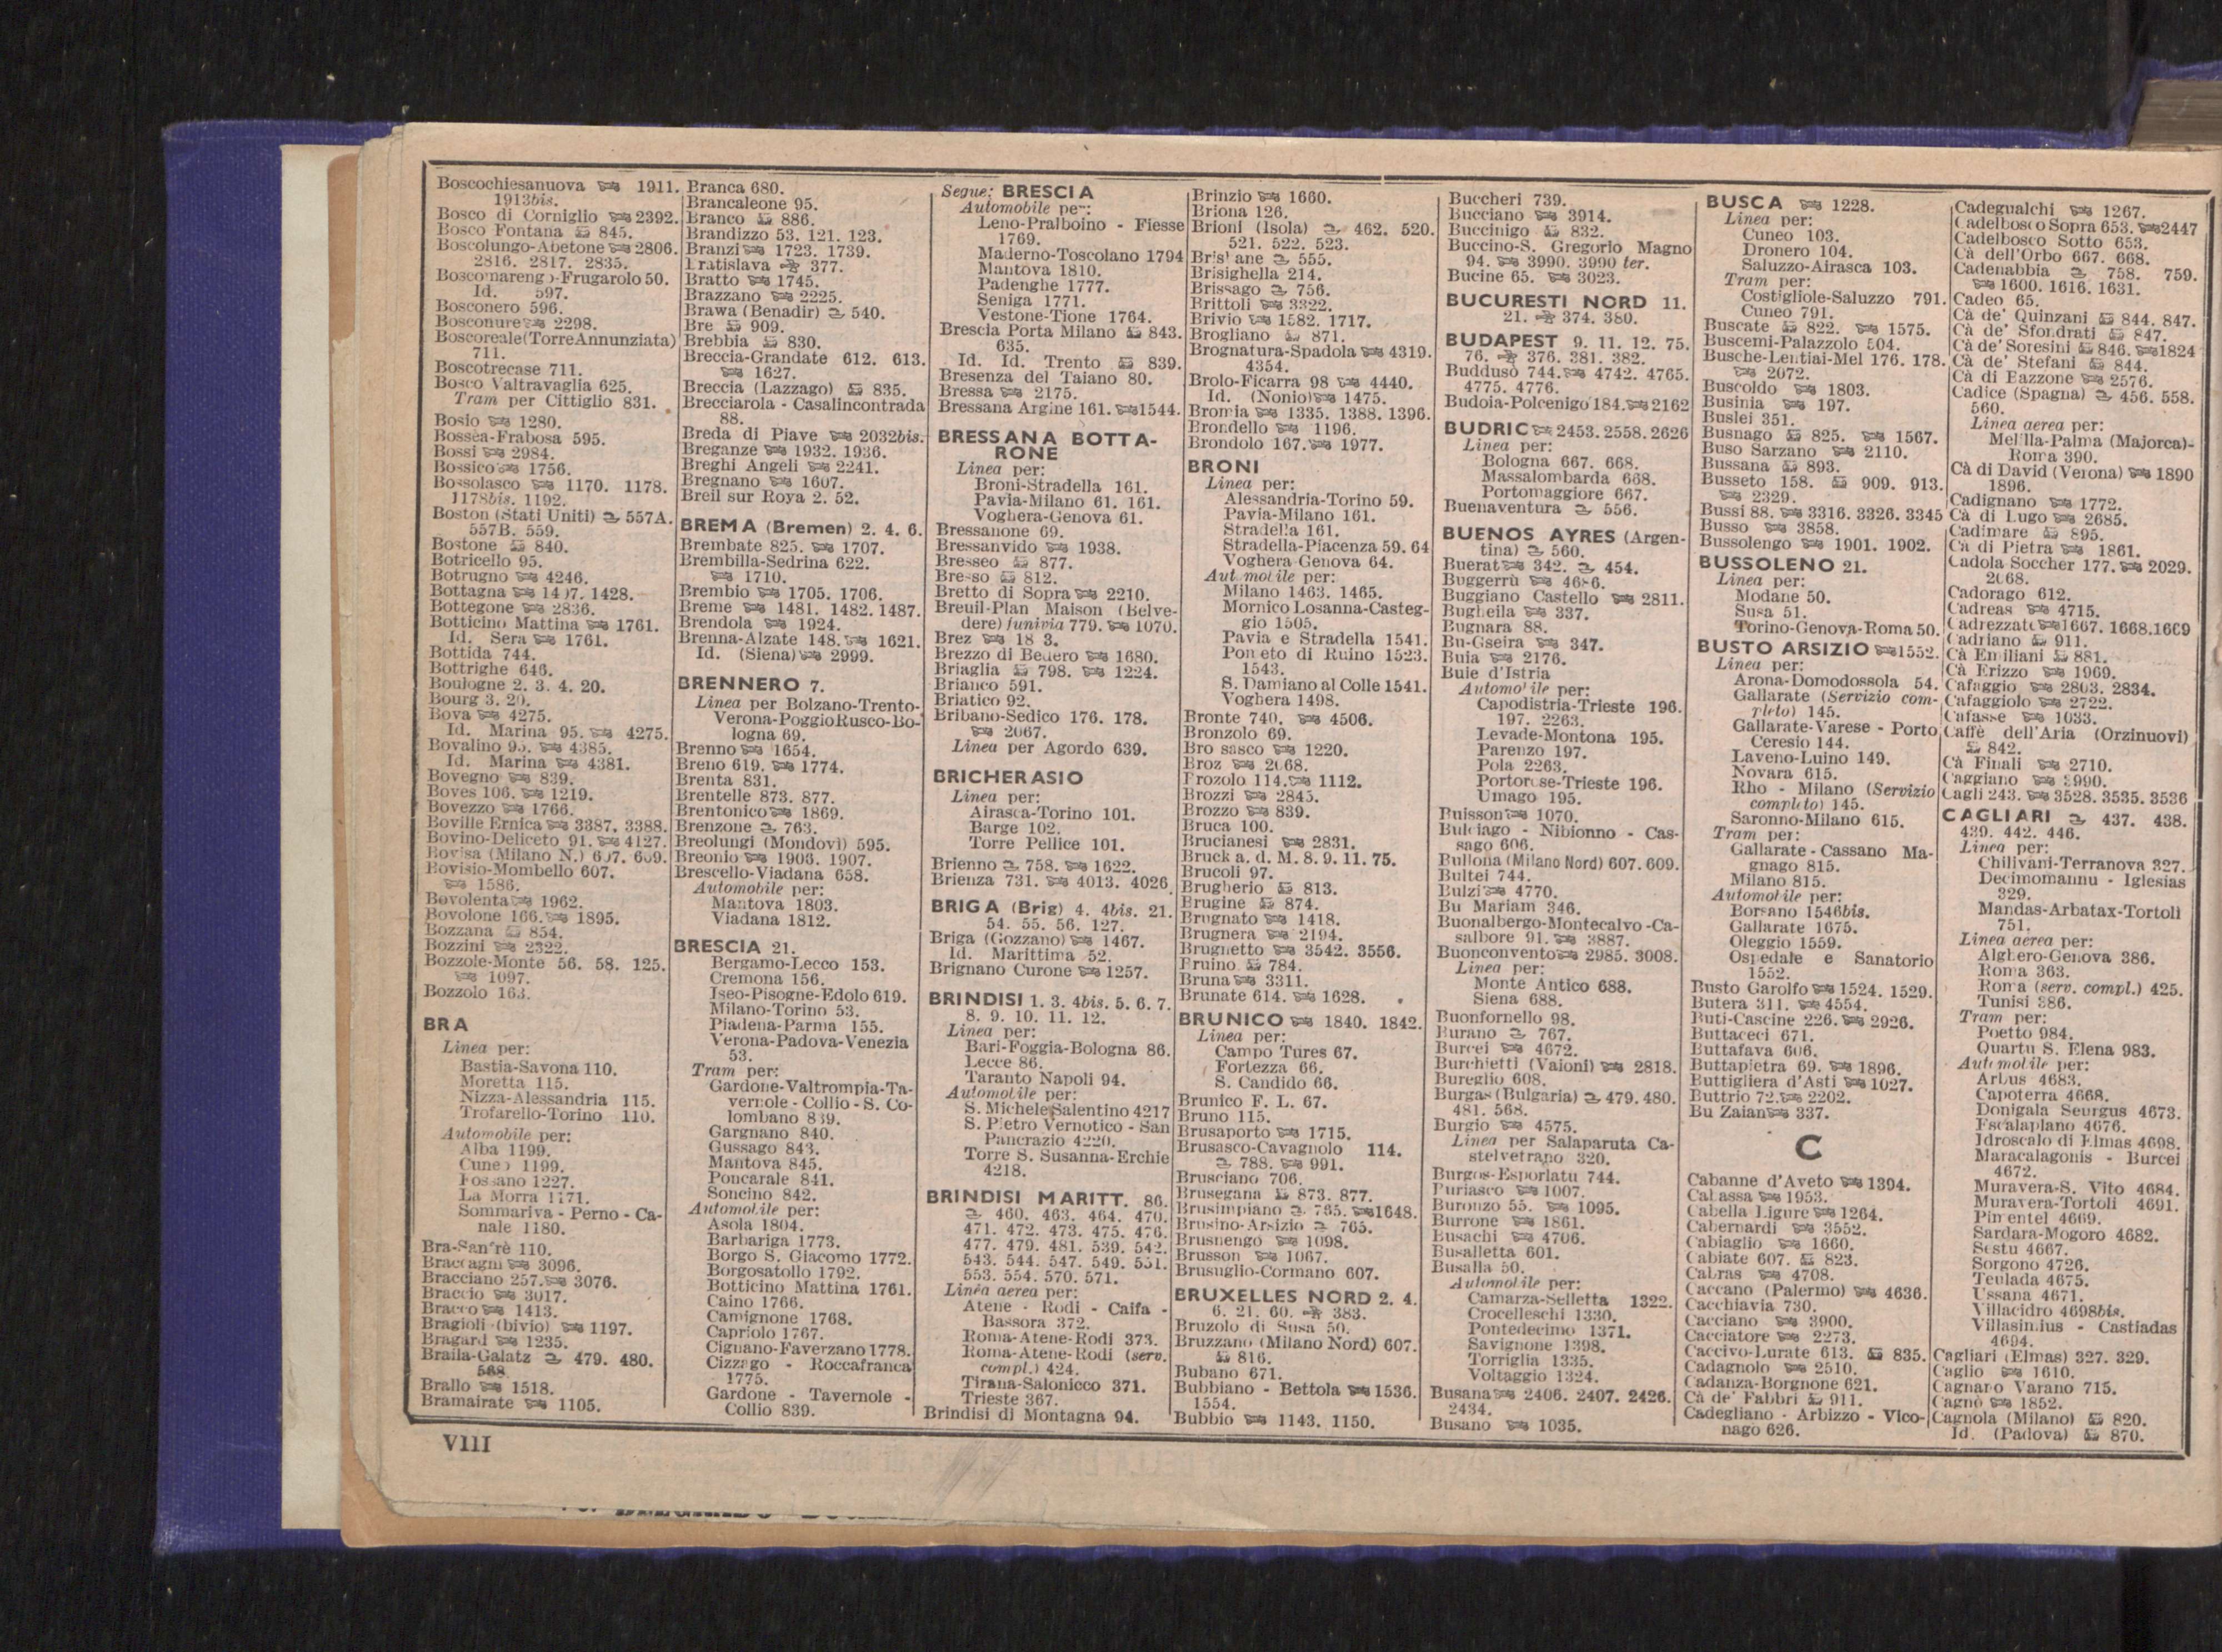 Boscochiesanuova 1911.
1913bis.
Bosco di Corniglio 2392.
Bosco Fontana 845.
Boscolungo-Abetone 2806.
2816. 2817. 2835.
Boscomarengo-Frugarolo 50.
Id. 597.
Bosconero 596.
Bosconure 2298.
Boscoreale (Torre Annunziata)
711.
Boscotrecase 711.
Bosco Valtravaglia 625.
Tram per Cittiglio 831.
Bosio 1280.
Bossea-Frabosa 595.
Bossi 2984.
Bossico 1756.
Bossolasco 1170. 1178.
1178bis. 1192.
Boston (Stati Uniti) 557A.
557B. 559.
Bostone 840.
Botricello 95.
Botrugno 4246.
Bottagna 1407. 1428.
Bottegone 2836.
Botticino Mattina 1761.
Id. Sera 1761.
Bottida 744.
Bottrighe 646.
Boulogne 2. 3. 4. 20.
Bourg 3. 20.
Bova 4275.
Id. Marina 95. 4275.
Bovalino 95. 4385.
Id. Marina 4381.
Bovegno 839.
Boves 106. 1219.
Bovezzo 1766.
Boville Ernica 3387. 3388.
Bovino-Deliceto 91. 4127.
Bovisa (Milano N.) 607. 609.
Bovisio-Mombello 607.
1586.
Bovolenta 1962.
Bovolone 166. 1895.
Bozzana 854.
Bozzini 2322.
Bozzole-Monte 56. 58. 125.
1097.
Bozzolo 163.
BRA
Linea per:
Bastia-Savona 110.
Moretta 115.
Nizza-Alessandria 115.
Trofarello-Torino 110.
Automobile per:
Alba 1199.
Cuneo 1199.
Fossano 1227.
La Morra 1171.
Sommariva - Perno - Ca-
nale 1180.
Bra-Sanfrè 110.
Braccagni 3096.
Bracciano 257. 3076.
Braccio 3017.
Bracco 1413.
Bragioli (bivio) 1197.
Bragard 1235.
Braila-Galatz 479. 480.
568
Brallo 1518.
Bramairate 1105.
Branca 680.
Brancaleone 95.
Branco 886.
Brandizzo 53. 121. 123.
Branzi 1723. 1739.
Bratislava 377.
Bratto 1745.
Brazzano 2225.
Brawa (Benadir) 540.
Bre 909.
Brebbia 830.
Breccia-Grandate 612. 613.
1627.
Breccia (Lazzago) 835.
Brecciarola - Casalincontrada
88.
Breda di Piave 2032bis.
Breganze 1932. 1936.
Breghi Angeli 2241.
Bregnano 1607.
Breil sur Roya 2. 52.
BREMA (Bremen) 2. 4. 6.
Brembate 825. 1707.
Brembilla-Sedrina 622.
1710.
Brembio 1705. 1706.
Breme 1481. 1482. 1487.
Brendola 1924.
Brenna-Alzate 148. 1621.
Id. (Siena) 2999.
BRENNERO 7.
Linea per Bolzano-Trento-
Verona-Poggio Rusco-Bo-
logna 69.
Brenno 1654.
Breno 619. 1774.
Brenta 831.
Brentelle 873. 877.
Brentonico 1869.
Brenzone 763.
Breolungi (Mondovì) 595.
Breonio 1903. 1907.
Brescello-Viadana 658.
Automobile per:
Mantova 1803.
Viadana 1812.
BRESCIA 21.
Bergamo-Lecco 153.
Cremona 156.
Iseo-Pisogne-Edolo 619.
Milano-Torino 53.
Piadena-Parma 155.
Verona-Padova-Venezia
53.
Tram per:
Gardone-Valtrompia-Ta-
vernole - Collio - S. Co-
lombano 839.
Gargnano 840.
Gussago 843.
Mantova 845.
Poncarale 841.
Soncino 842.
Automobile per:
Asola 1804.
Barbariga 1773.
Borgo S. Giacomo 1772.
Borgosatollo 1792.
Botticino Mattina 1761.
Caino 1766.
Camignone 1768.
Capriolo 1767.
Cignano-Faverzano 1778.
Cizzago - Roccafranca
1775.
Gardone - Tavernole -
Collio 839.
Segue: BRESCIA
Automobile per:
Leno-Pralboino - Fiesse
1769.
Maderno-Toscolano 1794
Mantova 1810.
Padenghe 1777.
Seniga 1771.
Vestone-Tione 1764.
Brescia Porta Milano 843.
635.
Id. Id. Trento 839.
Bresenza del Taiano 80.
Bressa 2175.
Bressana Argine 161. 1544.
BRESSANA BOTTA-
RONE
Linea per:
Broni-Stradella 161.
Pavia-Milano 61. 161.
Voghera-Genova 61.
Bressanone 69.
Bressanvido 1938.
Bresseo 877.
Bresso 812.
Bretto di Sopra 2210.
Breuil-Plan Maison (Belve-
dere) funivia 779. 1070.
Brez
Brezzo di Bedero 1680.
Briaglia 798. 1224.
Brianco 591.
Briatico 92.
Bribano-Sedico 176. 178.
2067.
Linea per Agordo 639.
BRICHERASIO
Linea per:
Airasca-Torino 101.
Barge 102.
Torre Pellice 101.
Brienno 758. 1622.
Brienza 731. 4013. 4026
BRIGA (Brig) 4. 4bis. 21.
54. 55. 56. 127.
Briga (Gozzano) 1467.
Id. Marittima 52.
Brignano Curone 1257.
BRINDISI 1. 3. 4bis. 5. 6. 7.
8. 9. 10. 11. 12.
Linea per:
Bari-Foggia-Bologna 86.
Lecce 86.
Taranto Napoli 94.
Automobile per:
S. Michele Salentino 4217
S. Pietro Vernotico - San
Pancrazio 4220.
Torre S. Susanna-Erchie
4218.
BRINDISI MARITT. 86.
460. 463. 464. 470.
471. 472. 473. 475. 476.
477. 479. 481. 539. 542.
543. 544. 547. 549. 551.
553. 554. 570. 571.
Linea aerea per:
Atene - Rodi - Caifa -
Bassora 372.
Roma-Atene-Rodi 373.
Roma-Atene-Rodi (serv.
compl.) 424.
Tirana-Salonicco 371.
Trieste 367.
Brindisi di Montagna 94.
Brinzio 1660.
Briona 126.
Brioni (Isola) 462. 520.
521. 522. 523.
Brisbane 555.
Brisighella 214.
Brissago 756.
Brittoli 3322.
Brivio 1582. 1717.
Brogliano 871.
Brognatura-Spadola 4319.
4354.
Brolo-Ficarra 98 4440.
Id. (Nonio) 1475.
Bromia 1335. 1388. 1396.
Brondello 1196.
Brondolo 167. 1977.
BRONI
Linea per:
Alessandria-Torino 59.
Pavia-Milano 161.
Stradella 161.
Stradella-Piacenza 59. 64
Voghera Genova 64.
Automobile per:
Milano 1463. 1465.
Mornico Losanna-Casteg-
gio 1505.
Pavia e Stradella 1541.
Pometo di Ruino 1523.
1543.
S. Damiano al Colle 1541.
Voghera 1498.
Bronte 740. 4506.
Bronzolo 69.
Brossasco 1220.
Broz 2068.
Brozolo 114. 1112.
Brozzi 2845.
Brozzo 839.
Bruca 100.
Brucianesi 2831.
Bruck a. d. M. 8. 9. 11. 75.
Brucoli 97.
Brugherio 813.
Brugine 874.
Brugnato 1418.
Brugnera 2194.
Brugnetto 3542. 3556.
Bruino 784.
Bruna 3311.
Brunate 614. 1628.
BRUNICO 1840. 1842.
Linea per:
Campo Tures 67.
Fortezza 66.
S. Candido 66.
Brunico F. L. 67.
Bruno 115.
Brusaporto 1715.
Brusasco-Cavagnolo 114.
788. 991.
Brusciano 706.
Brusegana 873. 877.
Brusimpiano 765. 1648.
Brusino-Arsizio 765.
Brusnengo 1098.
Brusson 1067.
Brusuglio-Cormano 607.
BRUXELLES NORD 2. 4.
6. 21. 60. 383.
Bruzolo di Susa 50.
Bruzzano (Milano Nord) 607.
816.
Bubano 671.
Bubbiano - Bettola 1536.
1554.
Bubbio 1143. 1150.
Buccheri 739.
Bucciano 3914.
Buccinigo 832.
Buccino-S. Gregorio Magno
94. 3990. 3990 ter.
Bucine 65. 3023.
BUCURESTI NORD 11.
21. 374. 380.
BUDAPEST 9. 11. 12. 75.
76. 376. 381. 382.
Buddusò 744. 4742. 4765.
4775. 4776.
Budoia-Polcenigo 184. 2162
BUDRIO 2453. 2558. 2626
Linea per:
Bologna 667. 668.
Massalombarda 668.
Portomaggiore 667.
Buenaventura 556.
BUENOS AYRES (Argen-
tina) 560.
Buerat 342. 454.
Buggerrù 4686.
Buggiano Castello 2811.
Bugheila 337.
Bugnara 88.
Bu-Gseira 347.
Buia 2176.
Buie d'Istria
Automobile per:
Capodistria-Trieste 196.
197. 2263.
Levade-Montona 195.
Parenzo 197.
Pola 2263.
Portorose-Trieste 196.
Umago 195.
Buisson 1070.
Bulciago - Nibionno - Cas-
sago 606.
Bullona (Milano Nord) 607. 609.
Bultei 744.
Bulzi 4770.
Bu Mariam 346.
Buonalbergo-Montecalvo-Ca-
salbore 91. 3887.
Buonconvento 2985. 3008.
Linea per:
Monte Antico 688.
Siena 688.
Buonfornello 98.
Burano 767.
Burcei 4672.
Burchietti (Vaioni) 2818.
Bureglio 608.
Burgas (Bulgaria) 479. 480.
481. 568.
Burgio 4575.
Linea per Salaparuta Ca-
stelvetrano 320.
Burgos-Esporlatu 744.
Buriasco 1007.
Buronzo 55. 1095.
Burrone 1861.
Busachi 4706.
Busalletta 601.
Busalla 50.
Automobile per:
Camarza-Selletta 1322.
Crocelleschi 1330.
Pontedecimo 1371.
Savignone 1398.
Torriglia 1335.
Voltaggio 1324.
Busana 2406. 2407. 2426.
2434.
Busano 1035.
BUSCA 1228.
Linea per:
Cuneo 103.
Dronero 104.
Saluzzo-Airasca 103.
Tram per:
Costigliole-Saluzzo 791.
Cuneo 791.
Buscate 822. 1575.
Buscemi-Palazzolo 504.
Busche-Lentiai-Mel 176. 178.
2072.
Buscoldo 1803.
Businia 197.
Buslei 351.
Busnago 825. 1567.
Buso Sarzano 2110.
Bussana 893.
Busseto 158. 909. 913.
2329.
Bussi 88. 3316. 3326. 3345
Busso 3858.
Bussolengo 1901. 1902.
BUSSOLENO 21.
Linea per:
Modane 50.
Susa 51.
Torino-Genova-Roma 50.
BUSTO ARSIZIO 1552.
Linea per:
Arona-Domodossola 54.
Gallarate (Servizio com-
pleto) 145.
Gallarate-Varese - Porto
Ceresio 144.
Laveno-Luino 149.
Novara 615.
Rho - Milano (Servizio
completo) 145.
Saronno-Milano 615.
Tram per:
Gallarate - Cassano Ma-
gnago 815.
Milano 815.
Automobile per:
Borsano 1546bis.
Gallarate 1675.
Oleggio 1559.
Ospedale e Sanatorio
1552.
Busto Garolfo 1524. 1529.
Butera 311. 4554.
Buti-Cascine 226. 2926.
Buttaceci 671.
Buttafava 606.
Buttapietra 69. 1896.
Buttigliera d'Asti 1027.
Buttrio 72. 2202.
Bu Zaian 337.
C
Cabanne d'Aveto 1394.
Cabassa 1953.
Cabella Ligure 1264.
Cabernardi 3552.
Cabiaglio 1660.
Cabiate 607. 823.
Cabras 4708.
Caccano (Palermo) 4636.
Cacchiavia 730.
Cacciano 3900.
Cacciatore 2273.
Caccivo-Lurate 613. 835.
Cadagnolo 2510.
Cadanza-Borgnone 621.
Cà de' Fabbri 911.
Cadegliano - Arbizzo - Vico-
nago 626.
Cadegualchi 1267.
Cadelbosco Sopra 653. 2447
Cadelbosco Sotto 653.
Cà dell'Orbo 667. 668.
Cadenabbia 758. 759.
1600. 1616. 1631.
Cadeo 65.
Cà de' Quinzani 844. 847.
Cà de' Sfondrati 847.
Cà de' Soresini 846. 1824
Cà de' Stefani 844.
Cà di Bazzone 2576.
Cadice (Spagna) 456. 558.
560.
Linea aerea per:
Melilla-Palma (Majorca)-
Roma 390.
Cà di David (Verona) 1890
1896.
Cadignano 1772.
Cà di Lugo 2685.
Cadimare 895.
Cà di Pietra 1861.
Cadola Soccher 177. 2029.
2068.
Cadorago 612.
Cadreas 4715.
Cadrezzate 1667. 1668. 1669
Cadriano 911.
Cà Emiliani 881.
Cà Erizzo 1969.
Cafaggio 2803. 2834.
Cafaggiolo 2722.
Cafasse 1033.
Caffè dell'Aria (Orzinuovi)
842.
Cà Finali 2710.
Caggiano 3990.
Cagli 243. 3528. 3535. 3536
CAGLIARI 437. 438.
439. 442. 446.
Linea per:
Chilivani-Terranova 327.
Decimomannu - Iglesias
329.
Mandas-Arbatax-Tortolì
751.
Linea aerea per:
Alghero-Genova 386.
Roma 363.
Roma (serv. compl.) 425.
Tunisi 386.
Tram per:
Poetto 984.
Quartu S. Elena 983.
Automobile per:
Arbus 4683.
Capoterra 4668.
Donigala Seurgus 4673.
Escalaplano 4676.
Idroscalo di Elmas 4698.
Maracalagonis - Burcei
4672.
Muravera-S. Vito 4684.
Muravera-Tortolì 4691.
Pimentel 4669.
Sardara-Mogoro 4682.
Sestu 4667.
Sorgono 4726.
Teulada 4675.
Ussana 4671.
Villacidro 4698bis.
Villasimius - Castiadas
4694.
Cagliari (Elmas) 327. 329.
Caglio 1610.
Cagnano Varano 715.
Cagnò 1852.
Cagnola (Milano) 820.
Id. (Padova) 870.
VIII